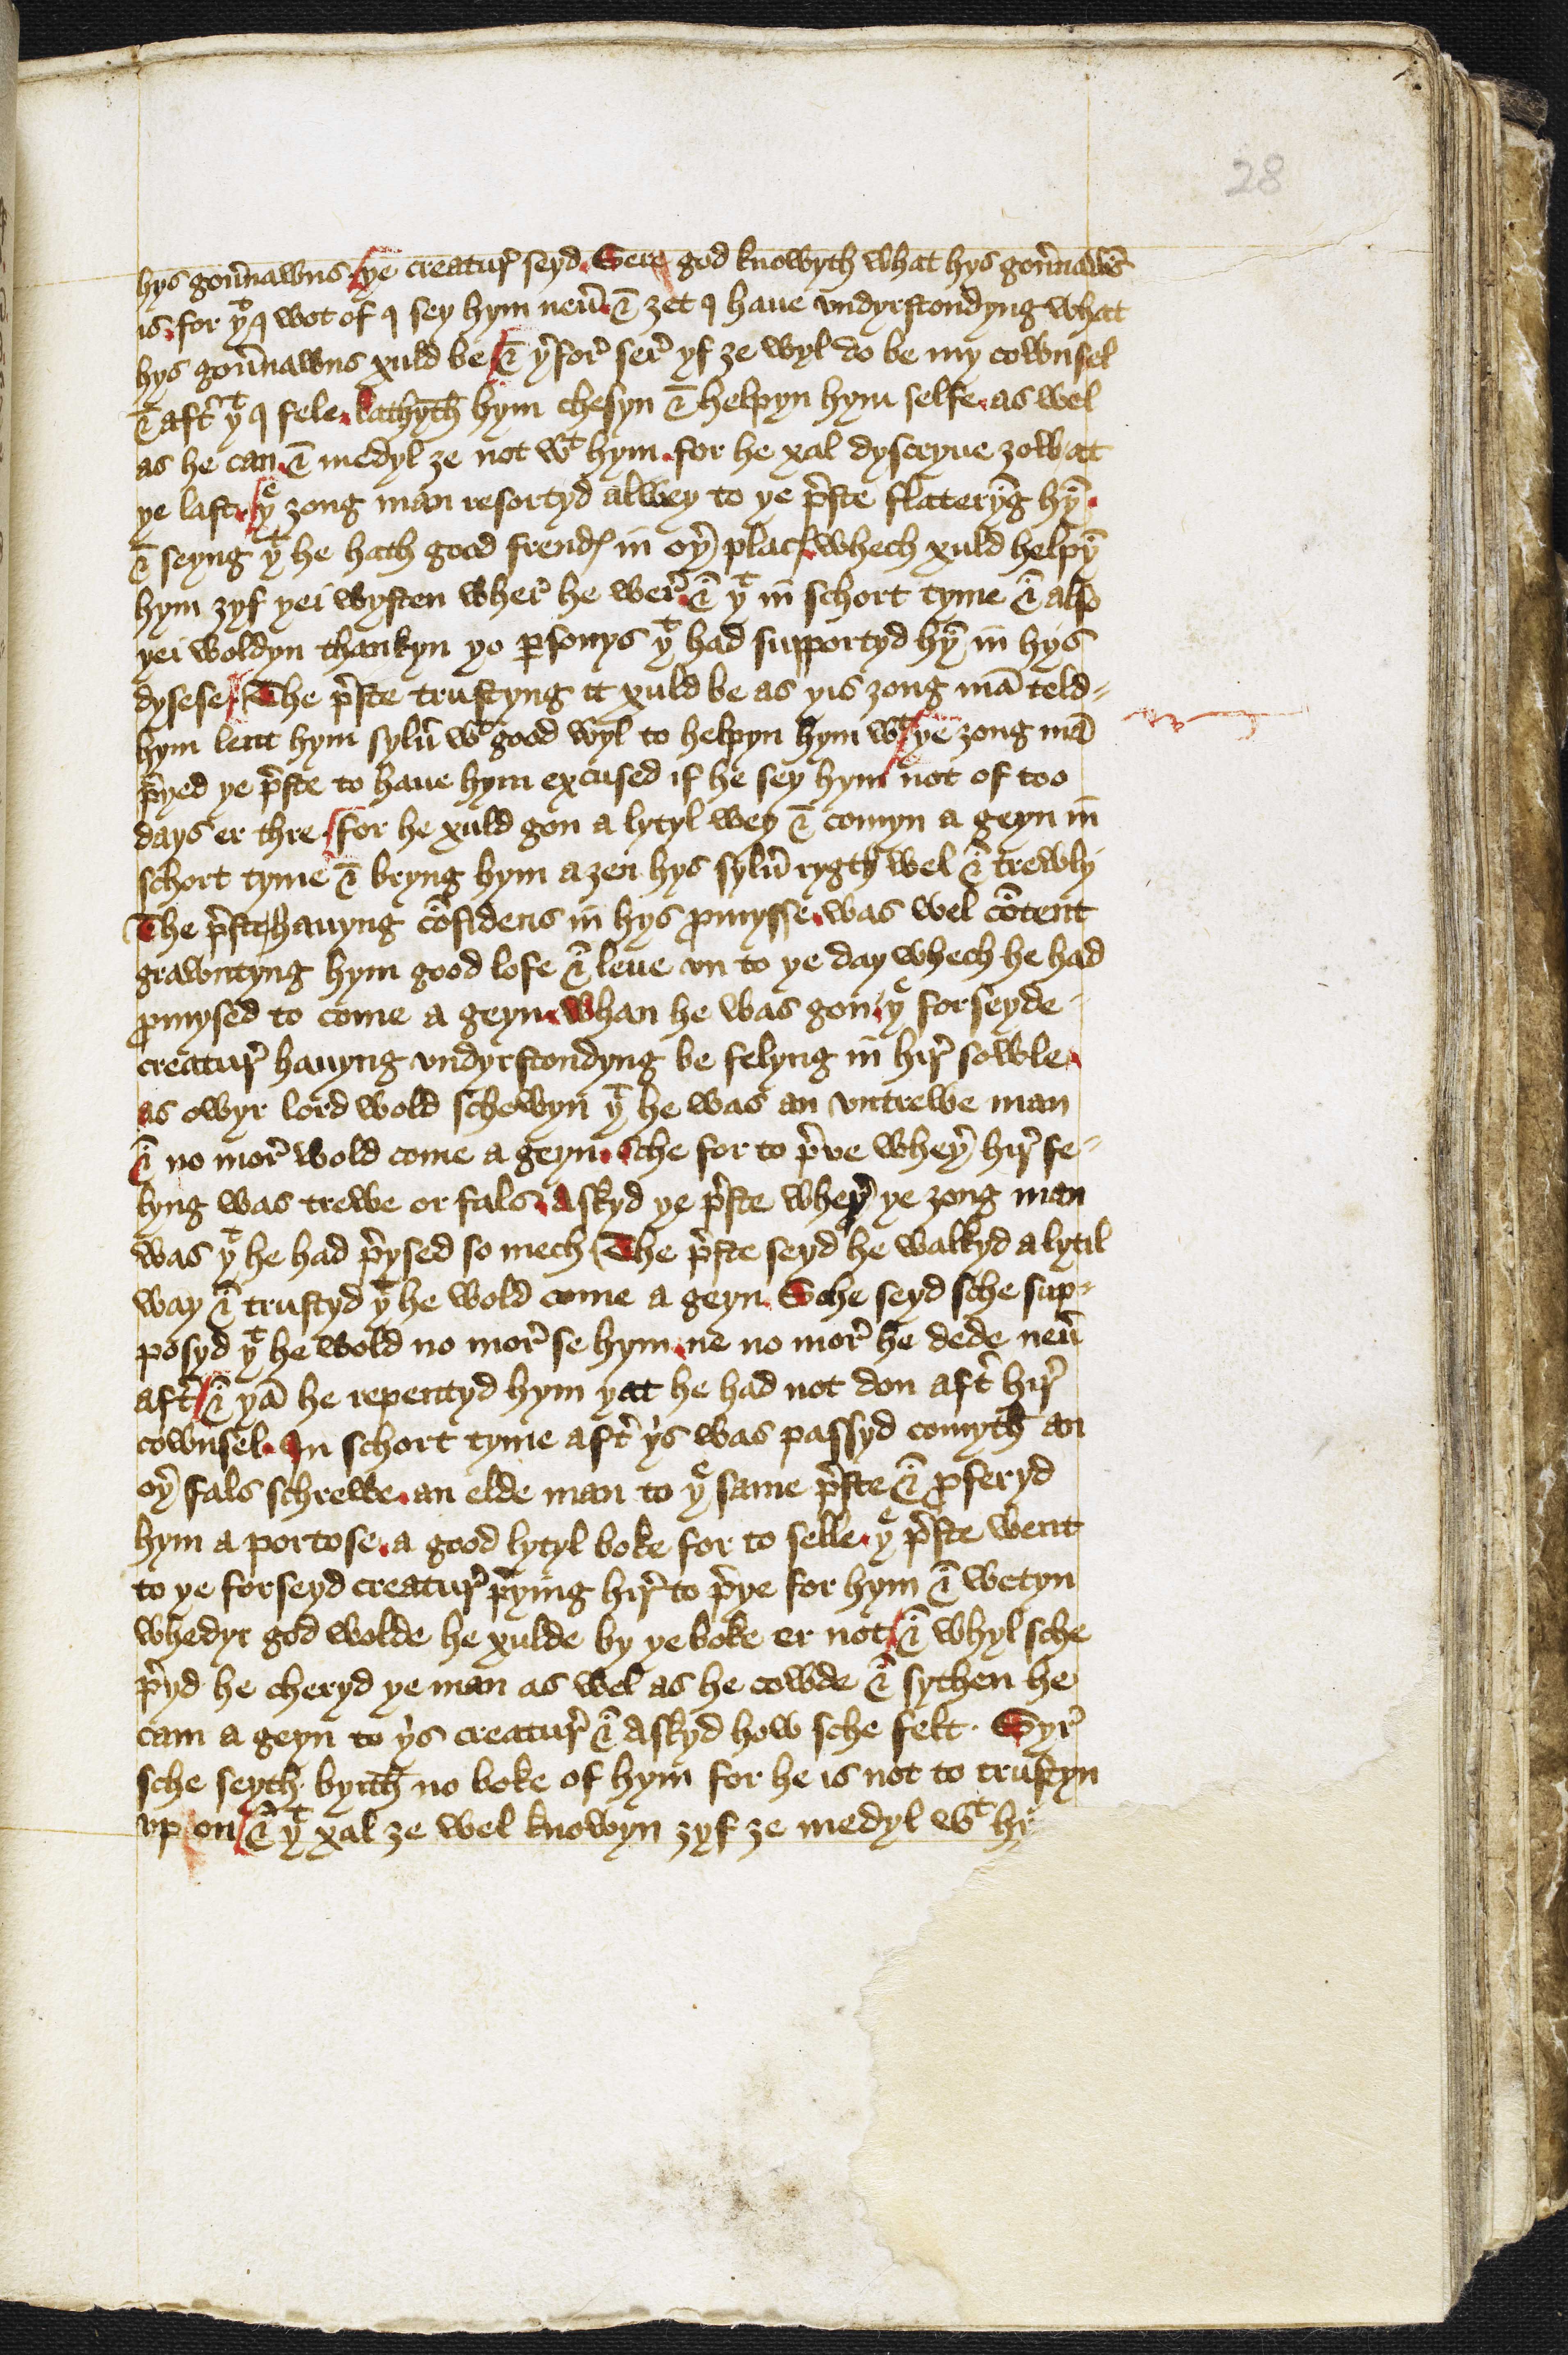 28
hys gou̅nawns / ye creatur̛ seyd. Sere god knowyth what hys gou̅nawns̅
is. for yͦ I wot of I sey hym neu̅ & ȝet I haue vndyrstondyng what
hys gou̅nawns xuld be / & y̛for̛ ser̛ yf ȝe wyl do be my cownsel
& aft̛ yͭ I fele. lathyth hym chesyn & helpyn hym selfe. as wel
as he can. & medyl ȝe not wͭ hym. for he xal dysceyue ȝow att
ye last. / yͤ ȝong man resortyd alwey to ye p̛ste flatery̅g hy̅.
& seyng yͭ he hath good frendꝭ in oy̛ placꝭ. whech xuld helpy̅
hym ȝyf yei wysten wher̛ he wer̛. & yͭ in schort tyme & also
yei woldyn thankyn yo ꝑsonys yͭ had supportyd hy̅ in hys
dysese / The p̛ste trustyng it xuld be as yis ȝong ma̅ teld-
hym lent hym sylu̅ wͭ good wyl to helpyn hym wͭ / ye ȝong ma̅
p̛yed ye p̛ste to haue hym excused if he sey hym not of too
days er thre / for he xuld gon a lytyl wey & comyn a geyn in
schort tyme & bryng hym aȝen hys sylu̅ rygth wel & trewly
The p̛ste / hauyng co̅fidens in hys ꝓmysse. was wel co̅tent
grawntyng hym good lofe & leue vn to ye day whech he had
ꝓmysed to come a geyn. whan he was gon / yͤ forseyde-
creatur̛ hauyng vndyrstondyng be felyng in hir̛ sowle.
as owyr lord wold schewyn yͭ he was an vntrewe man
& no mor̛ wold come a geyn. sche for to p̛ve whey̛ hir̛ fe-
lyng was trewe or fals. Askyd ye p̛ste whey̛ ye ȝong man
was yͭ he had p̛ysed so mech / The p̛ste seyd he walkyd a lytil
way & trustyd yͭ he wold come a geyn. Sche seyd sche sup-
posyd yͭ he wold no mor̛ se hym. ne no mor̛ he dede neu̅
aft̛ / & ya̅ he repentyd hym yat he had not don aft̛ hir̛
cownsel. In schort tyme aft̛ yˢs was passyd comyth an
oy̛ fals schrewe. an elde man to yͤ same p̛ste & ꝓferyd
hym a portose. a good lytyl boke for to selle. yͤ p̛ste went
to ye forseyd creatur̛ p̛ying hir̛ to p̛ye for hym & wetyn
whedyr god wolde he xulde by ye boke er not / & whyl sche
p̛yd he cheryd ye man as wel as he cowde & sythen he
cam a geyn to yˢs creatur̛ & askyd how sche felt. Syr̛
sche seyth. byith no boke of hym for he is not to trustyn
vp on / & yͭ xal ȝe wel knowyn ȝyf ȝe medyl wͭ hy